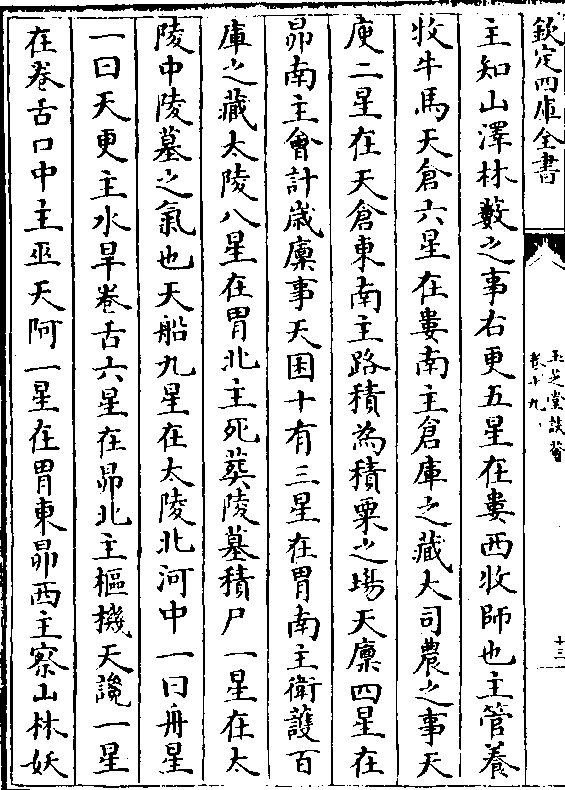 欽定四庫全書
玉芝堂談薈
卷十九
十三
主知山澤林藪之事右更五星在婁西牧師也主管養
牧牛馬天倉六星在婁南主倉庫之藏大司農之事天
庾二星在天倉東南主路積為積粟之塲天廩四星在
昴南主會計嵗廩事天囷十有三星在胃南主衛䕶百
庫之藏太陵八星在胃北主死葬陵墓積尸一星在太
陵中陵墓之氣也天船九星在太陵北河中一曰舟星
一曰天更主水旱卷舌六星在昴北主樞機天讒一星
在卷舌口中主巫天阿一星在胃東昴西主察山林妖